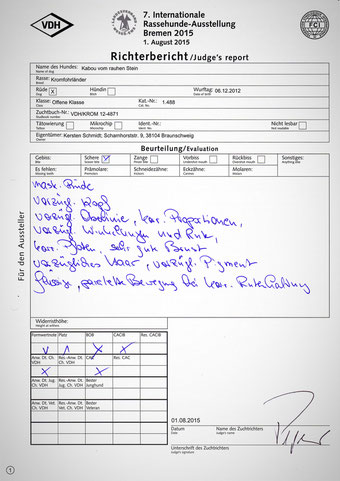 VDH
7. Internationale
Rassehunde-Ausstellung
Bremen 2015
1. August 2015
FCI
Richterbericht/Judge's report
Name des Hundes: Kabou vom rauhen Stein
Name of dog
Rasse: Kromfohrländer
Breed
Rüde X Hündin Wurftag: 06.12.2012
Dog Bitch Date of birth
Klasse: Offene Klasse Kat.-Nr.: 1.488
Class Cat. No.
Zuchtbuch-Nr.: VDH/KROM 12-4871
Studbook number
Tätowierung Mikrochip Ident.-Nr.: Nicht lesbar
Tattoo Microchip Ident No. Not readable
Eigentümer: Kersten Schmidt, Schamhorststr. 9, 38104 Braunschweig
Owner
Beurteilung/Evaluation
Gebiss: Schere Zange Vorbiss Rückbiss Sonstiges:
Bite Scissor bite Pincer bite Undershot mouth Overshot mouth Anything else
Es fehlen: Prämolare: Schneidezähne: Eckzähne: Molaren:
Missing teeth Premolars Incisors Canines Molars
Für den Aussteller
mask. Rüde
vorzügl. Kopf
vorzügl. Oberlinie, korr. Proportionen,
vorzügl. Winkelungen und Rute,
korr. Pfoten, sehr gute Brust
vorzügliches Haar, vorzügl. Pigment
flüssige, parallele Bewegung bei korr. Rutenhaltung
Widerristhöhe:
Height at withers
Formwertnote Platz BOB CACIB Res. CACIB
V 1 X X
Anw. Dt. Ch. VDH Res.-Anw. Dt. Ch. VDH CAC Res. CAC
X X
Anw. Dt. Jug. Ch. VDH Res.-Anw. Dt. Jug. Ch. VDH Bester Junghund
Anw. Dt. Vet. Ch. VDH Res.-Anw. Dt. Vet. Ch. VDH Bester Veteran
01.08.2015
Datum Name des Zuchtrichters
Date Judge's name
Unterschrift des Zuchtrichters
Judge's signature
1